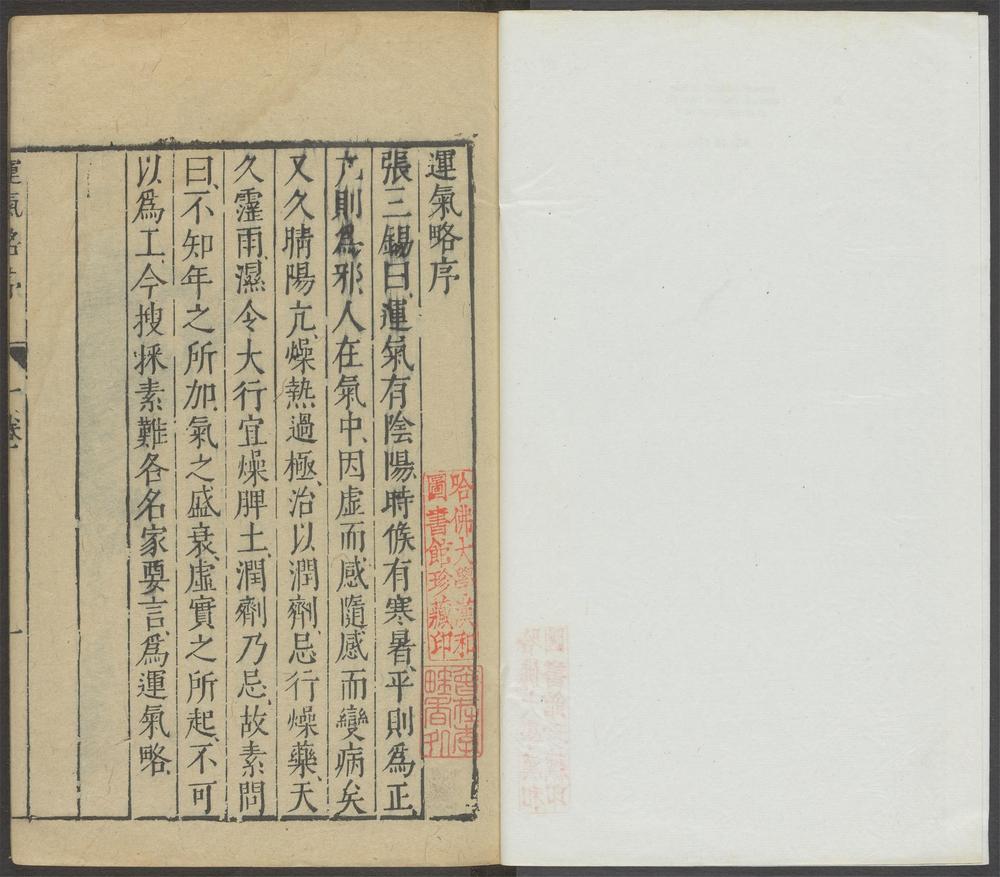 運氣略序
張三錫曰、運氣有陰陽、時候有寒暑、平則爲正、
亢則爲邪、人在氣中、因虛而感、隨感而變病矣
又久晴陽亢、燥熱過極、治以潤劑、忌行燥藥、天
久霪雨、濕令大行、宜燥脾土、潤劑乃忌、故素問
曰、不知年之所加、氣之盛衰、虛實之所起、不可
以爲工、今搜採素難各名家要言、爲運氣略、
哈佛大學漢和
圖書館珍藏印
運氣略序
一卷
一